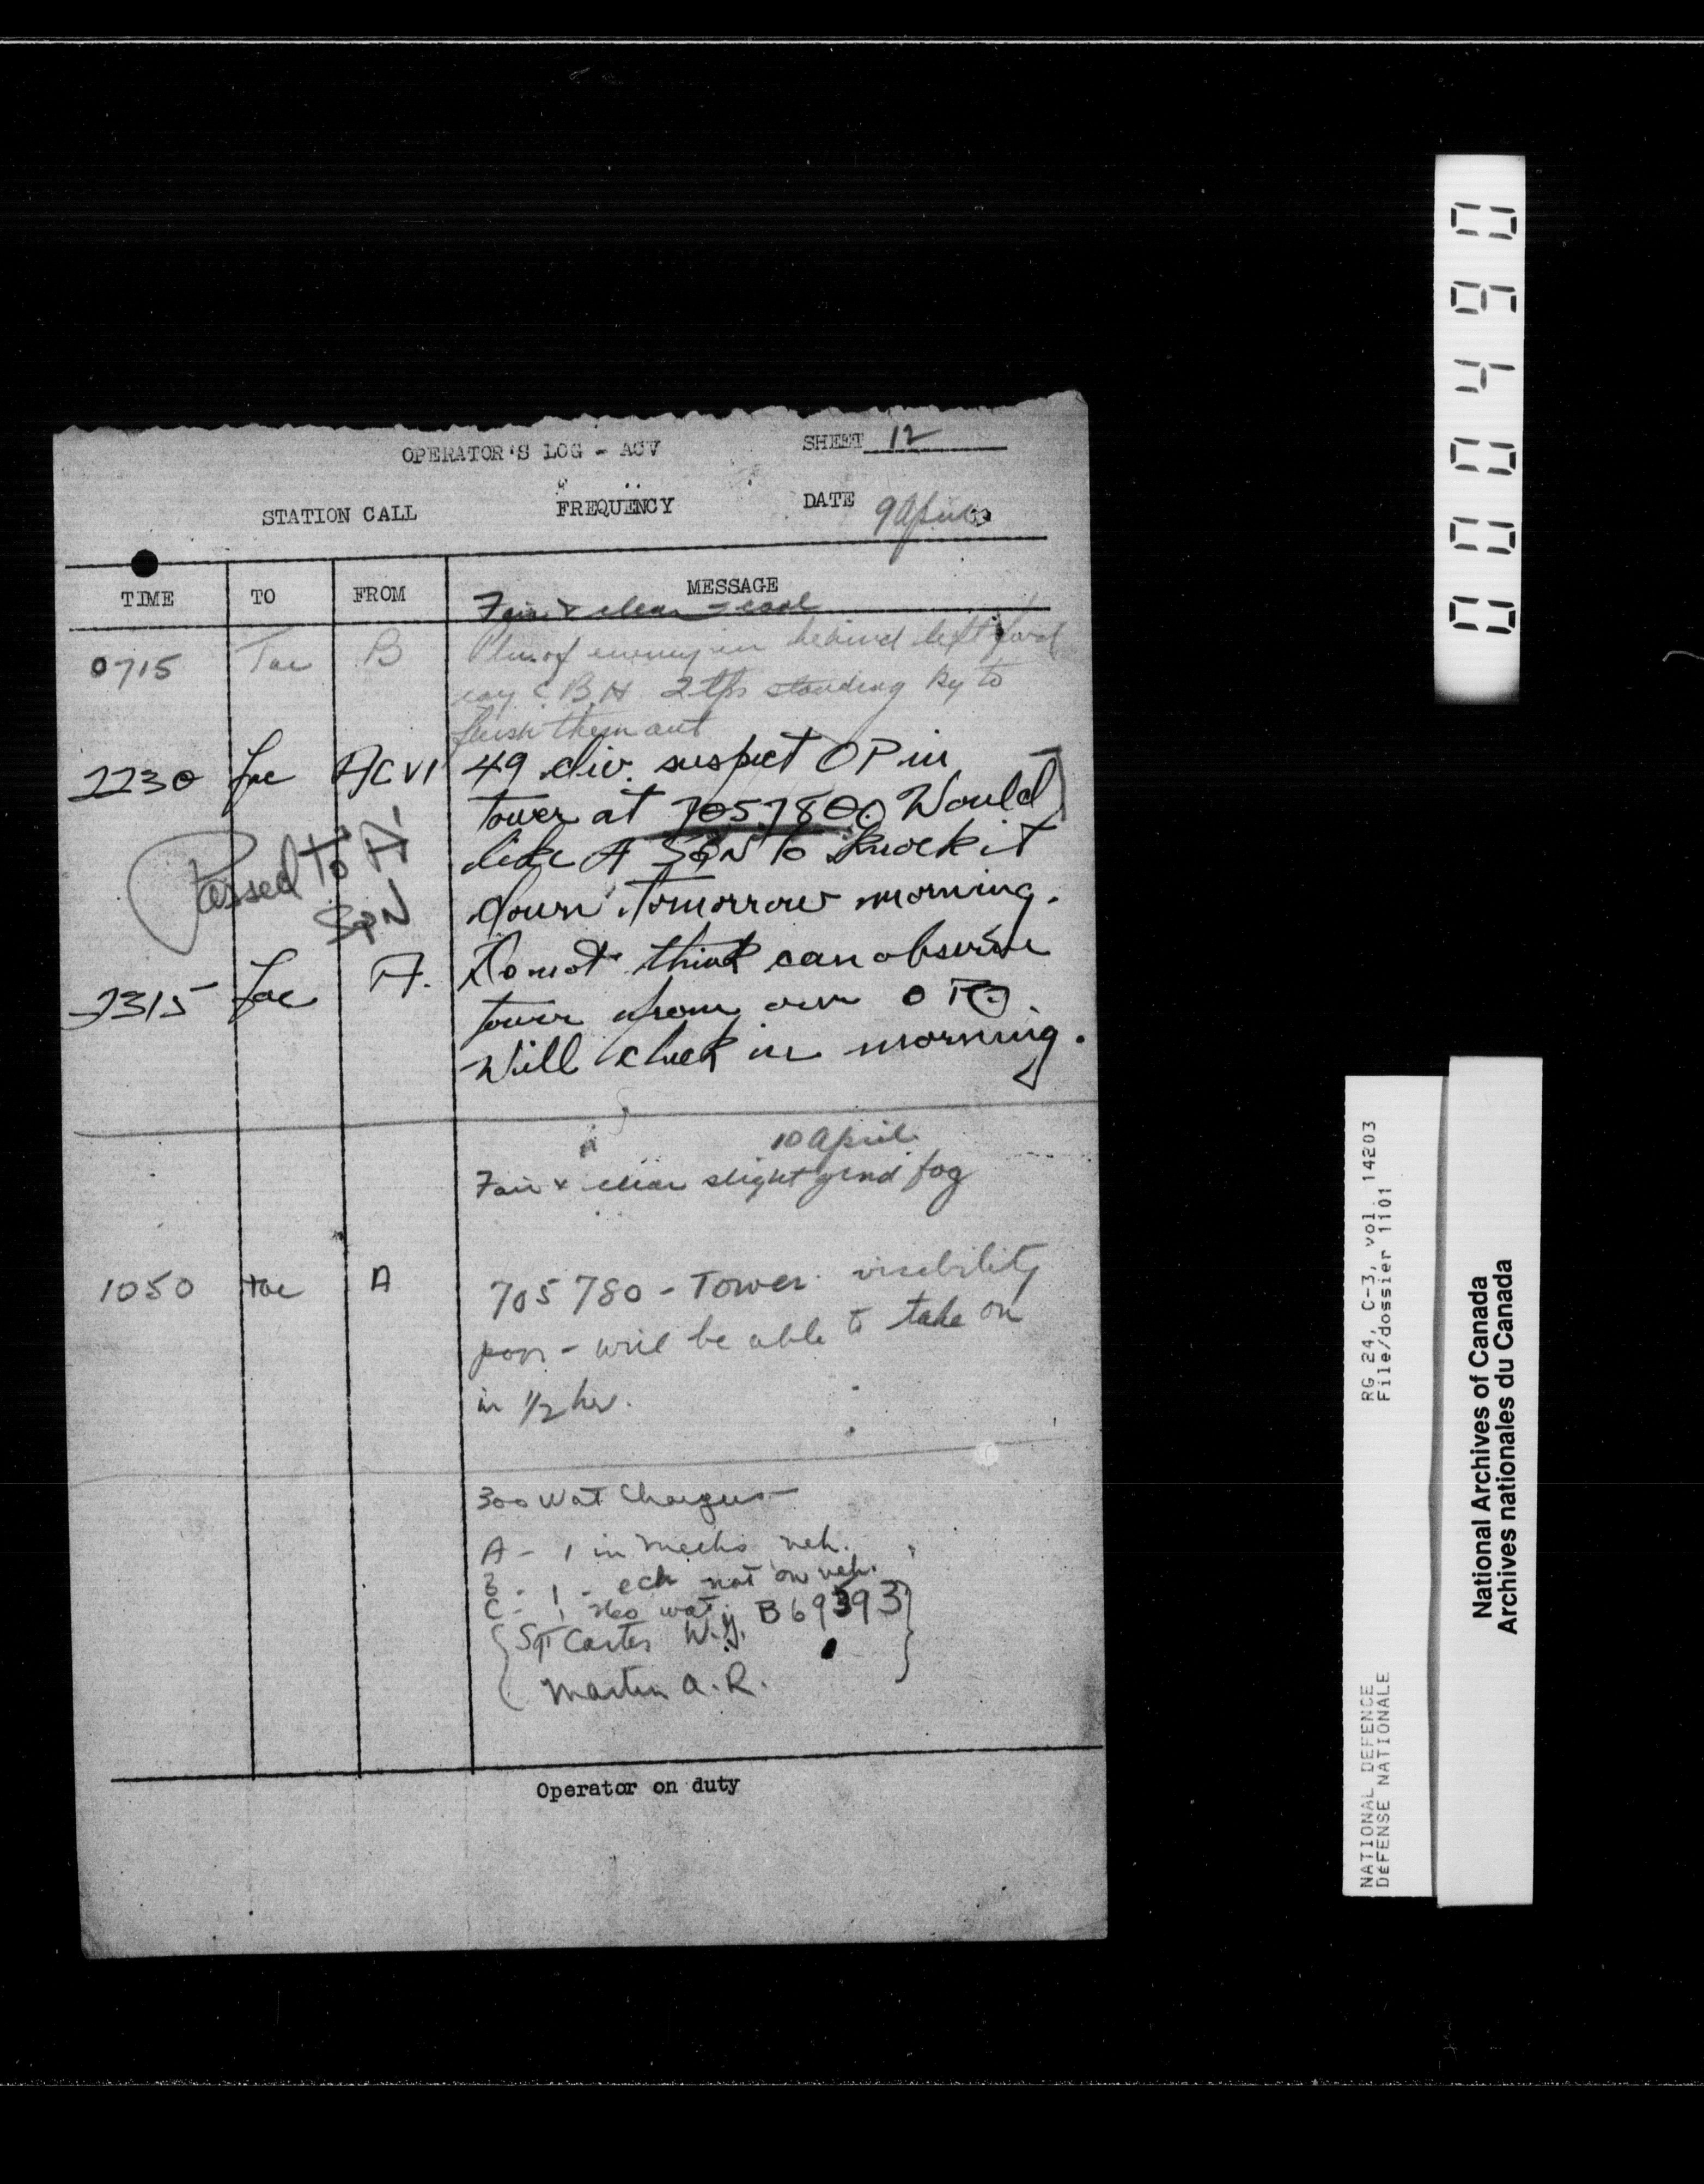 OPERATOR'S LOG - ACV SHEET 12
STATION CALL FREQUENCY DATE 9 April
TIME TO FROM MESSAGE
Fair & clear - cool
0715 Tac B Pln of enemy in behind left fwd
coy C.B.H 2 tps standing by to
flush them out
2230 Tac ACV1 49 div. suspect OP in
tower at 705780. Would
like A SQN to knock it
down tomorrow morning.
Passed to A
SQN
2315 Tac A. Do not think can observe
tower from our OPs.
Will check in morning.
10 April
Fair & clear slight grnd fog
1050 Tac A 705780 - Tower visibility
poor - will be able to take on
in 1/2 hr.
300 Wat Chargers -
A - 1 in mechs veh.
B - 1 - ech not on veh.
C - 1 wat
Sgt Carter W.J. B69393
Martin A.R.
Operator on duty
000490
RG 24, C-3, vol. 14203
File/dossier 1101
NATIONAL DEFENCE
DÉFENSE NATIONALE
National Archives of Canada
Archives nationales du Canada